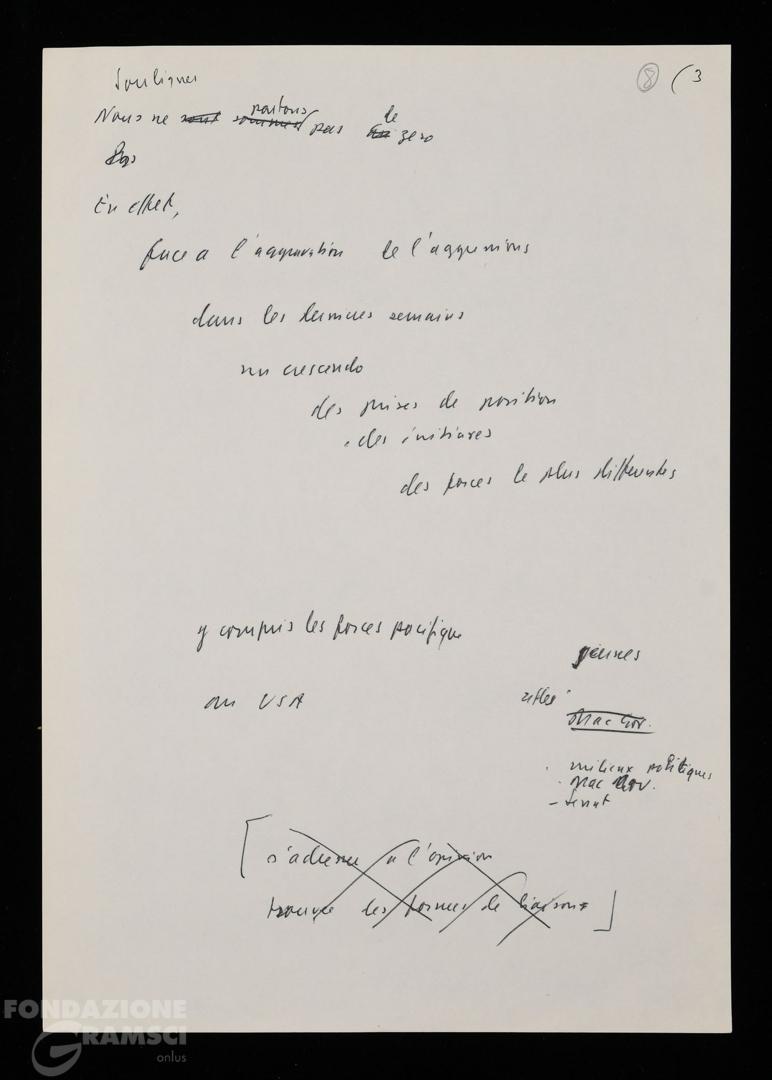 Souligner
8 (3
Nous ne sont sommes partons pas de zero
En effet,
face a l'aggravation de l'aggressions
dans les dernieres semaines
un crescendo
des prises de position
des initiaves
des forces le plus differentes
y compris les forces pacifique
jeunes
au USA
Mac Gov.
milieux politiques
Mac Gov.
- Senat
[s'adresse a l'opinion
trouve des formes de liaisons]
FONDAZIONE
GRAMSCI
onlus